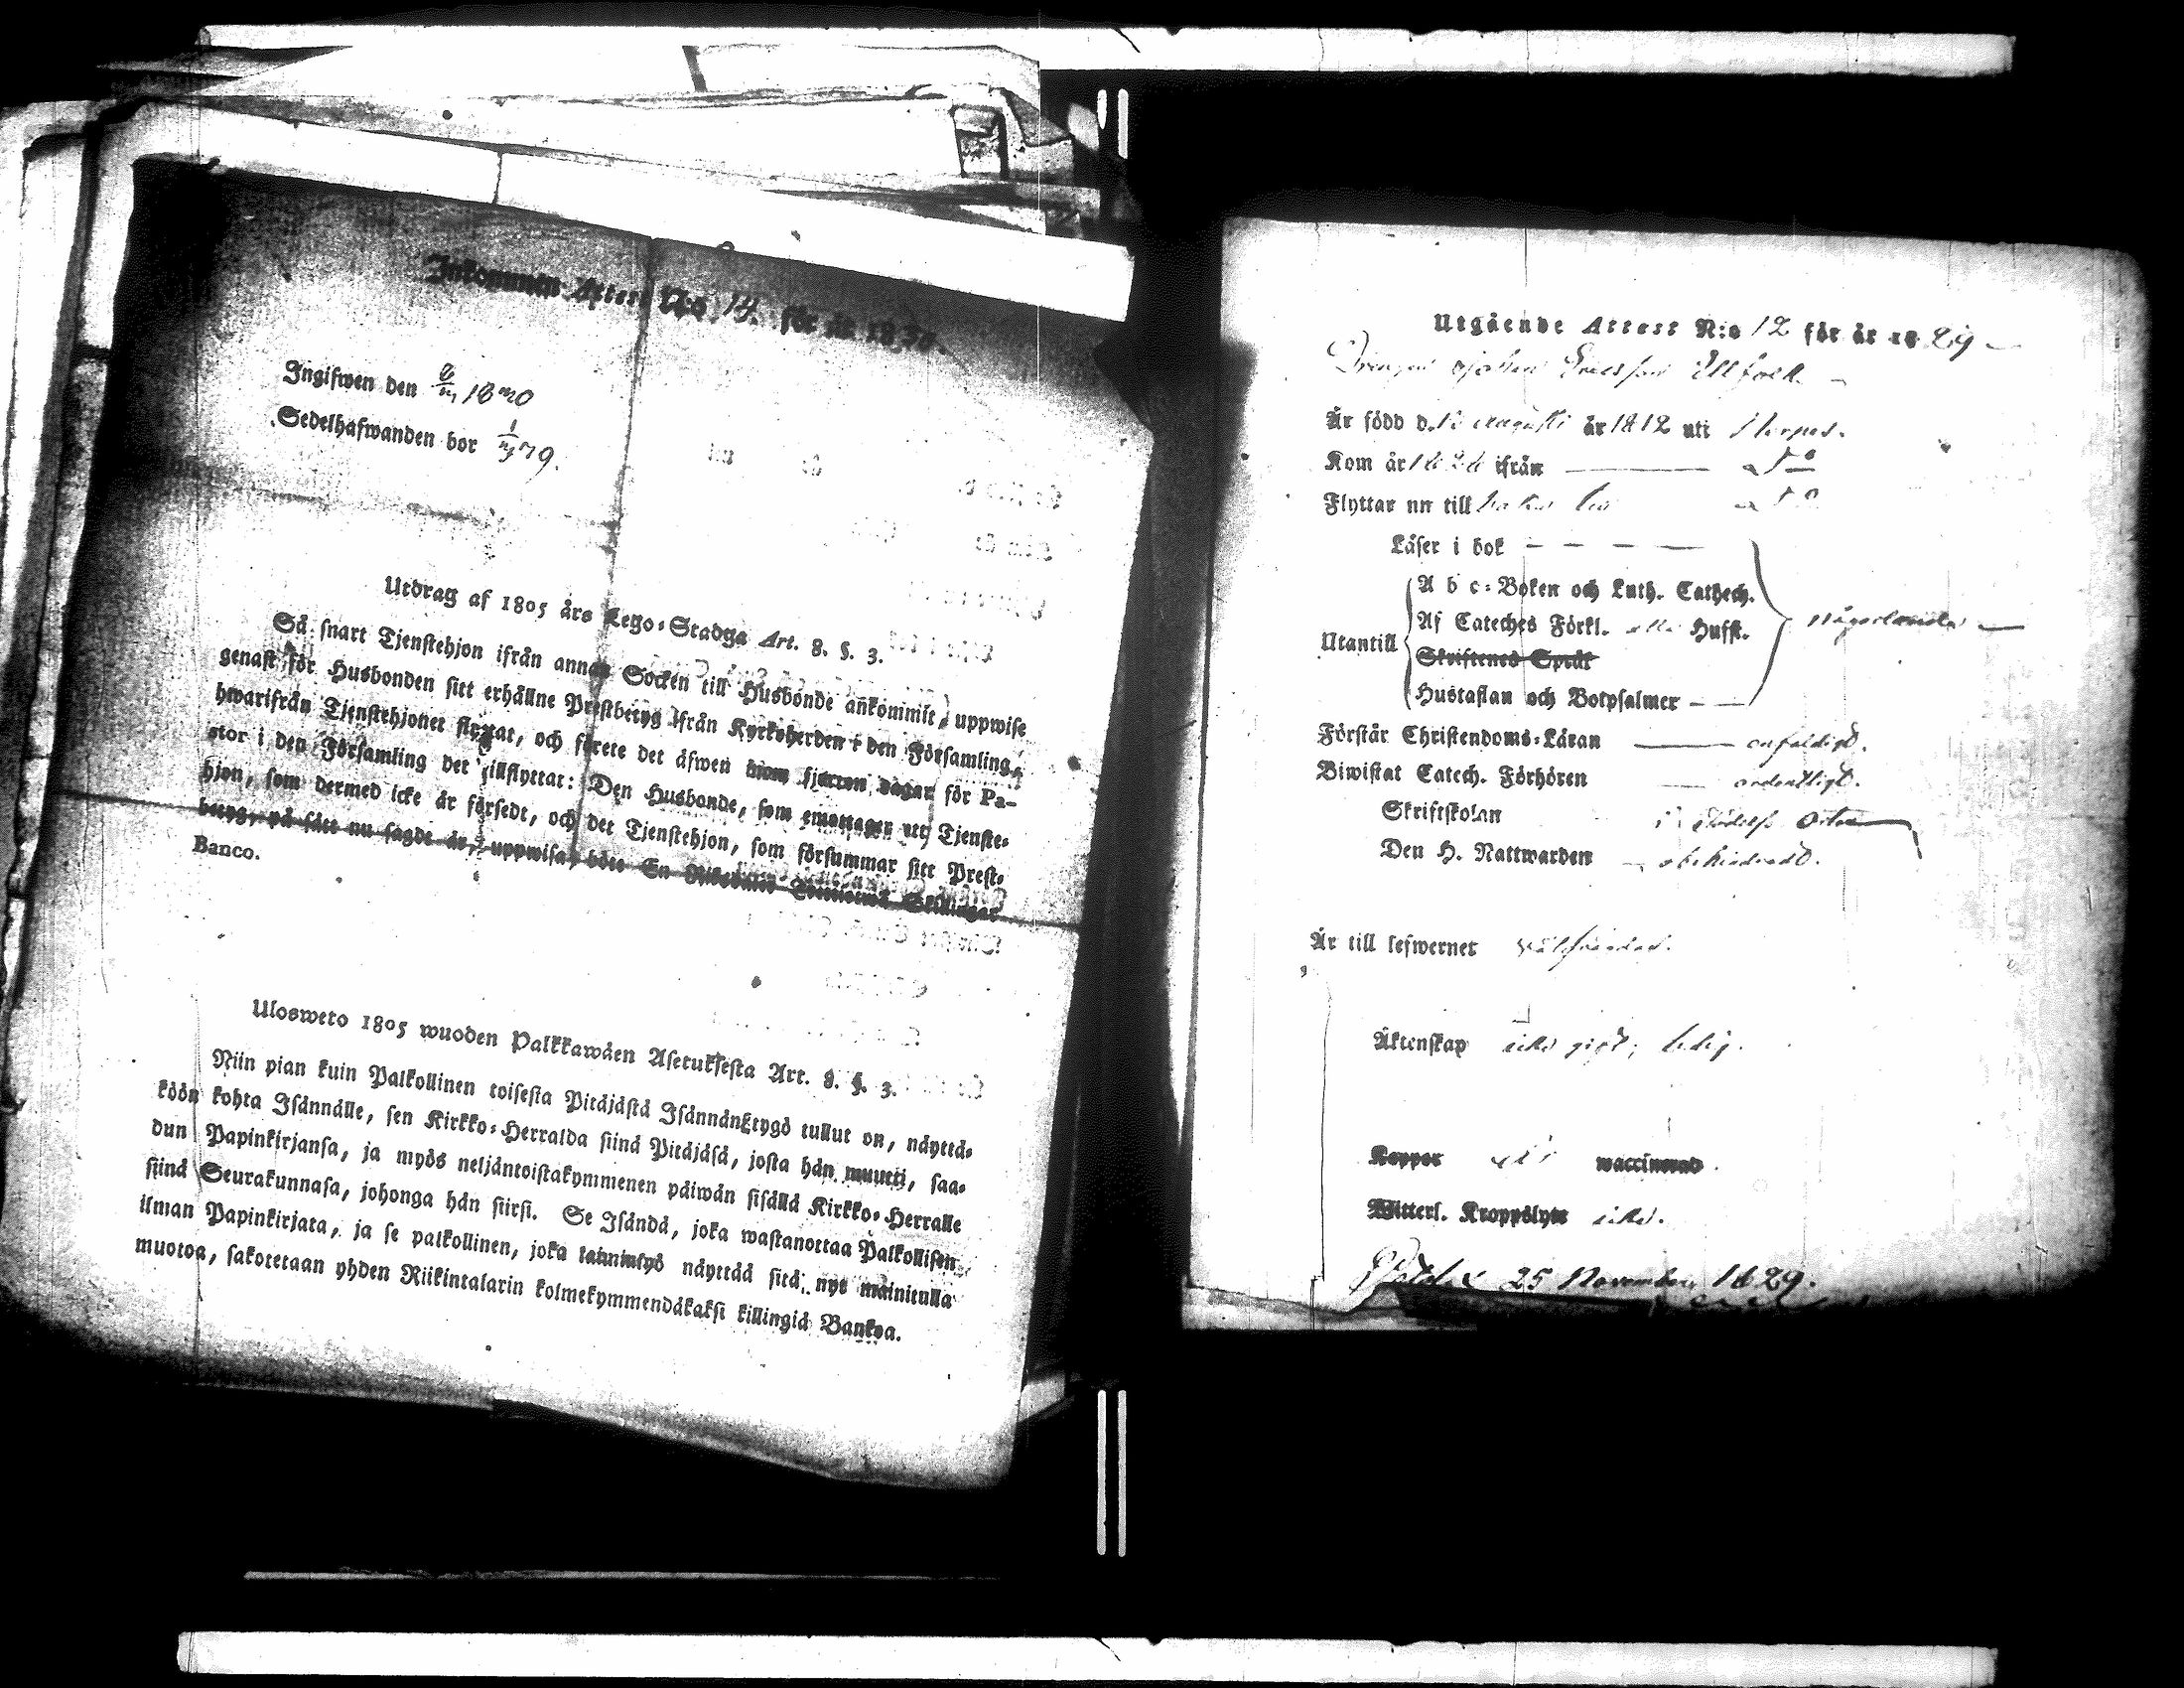 Inkommen Attest N:o 14. för år 1830.
Ingifwen den 1830
Sedelhafwanden bor 79.
Utdrag af 1805 års Lego-Stadga Art. 8. §. 3.
Så snart Tjenstehjon ifrån annan Socken till Husbonde ankommit, uppwise
genast för Husbonden sitt erhållne Prestbetyg ifrån Kyrkoherden i den Församling,
hwarifrån Tjenstehjonet flyttat, och förete det äfwen inom fjorton dagar för Pa-
stor i den Församling det tillflyttat: Den Husbonde, som emottager ett Tjenste-
hjon, som dermed icke är försedt, och det Tjenstehjon, som försummar sitt Prest-
betyg, på sätt nu sagdt är, uppwisa, böte En Riksdaler Trettiotwå Skillingar
Banco.
Ulosweto 1805 wuoden Palkkawäen Asetuksesta Art. 8. §. 3.
Niin pian kuin Palkollinen toisesta Pitäjästä Isännän tygö tullut on, näyttä-
köön kohta Isännälle, sen Kirkko-Herralda siinä Pitäjäsä, josta hän muutti, saa-
dun Papinkirjansa, ja myös neljäntoistakymmenen päiwän sisällä Kirkko-Herralle
siinä Seurakunnasa, johonga hän siirsi. Se Isändä, joka wastanottaa Palkollisen
ilman Papinkirjata, ja se palkollinen, joka laiminlyö näyttää sitä, nyt mainitulla
muotoa, sakotetaan yhden Riikintalarin kolmekymmendäkaksi killingiä Bankoa.
Utgående Attest N:o 12 för år 1829
Drengen Johan Ersson Ellfolk.
Är född d. Augusti år 1812 uti
Kom år 1828 ifrån
Flyttar nu till
Läser i bok
A b c-Boken och Luth. Cathech.
Utantill Af Cateches Förkl. Hufst.
Skriftenes Språk
någorlunda
Hustaflan och Botpsalmer
Förstår Christendoms-Läran enfaldigt.
Biwistat Catech. Förhören ordentligt.
Skriftskolan i
Den H. Nattwarden obehindrad.
Är till lefwernet wälfrejdad.
Äktenskap icke gift; ledig.
Koppor waccinerad.
Witterl. Kroppslyte icke.
25 November 1829.